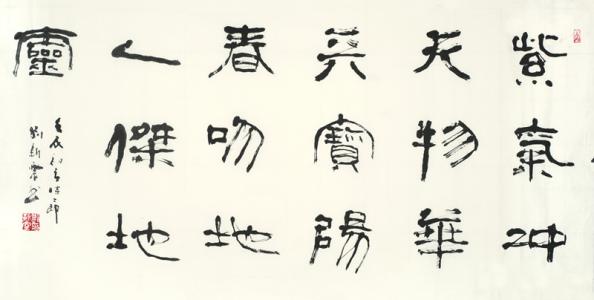 紫氣冲
天物華
天寶陽
春吻地
人傑地
靈
壬辰初春
劉新